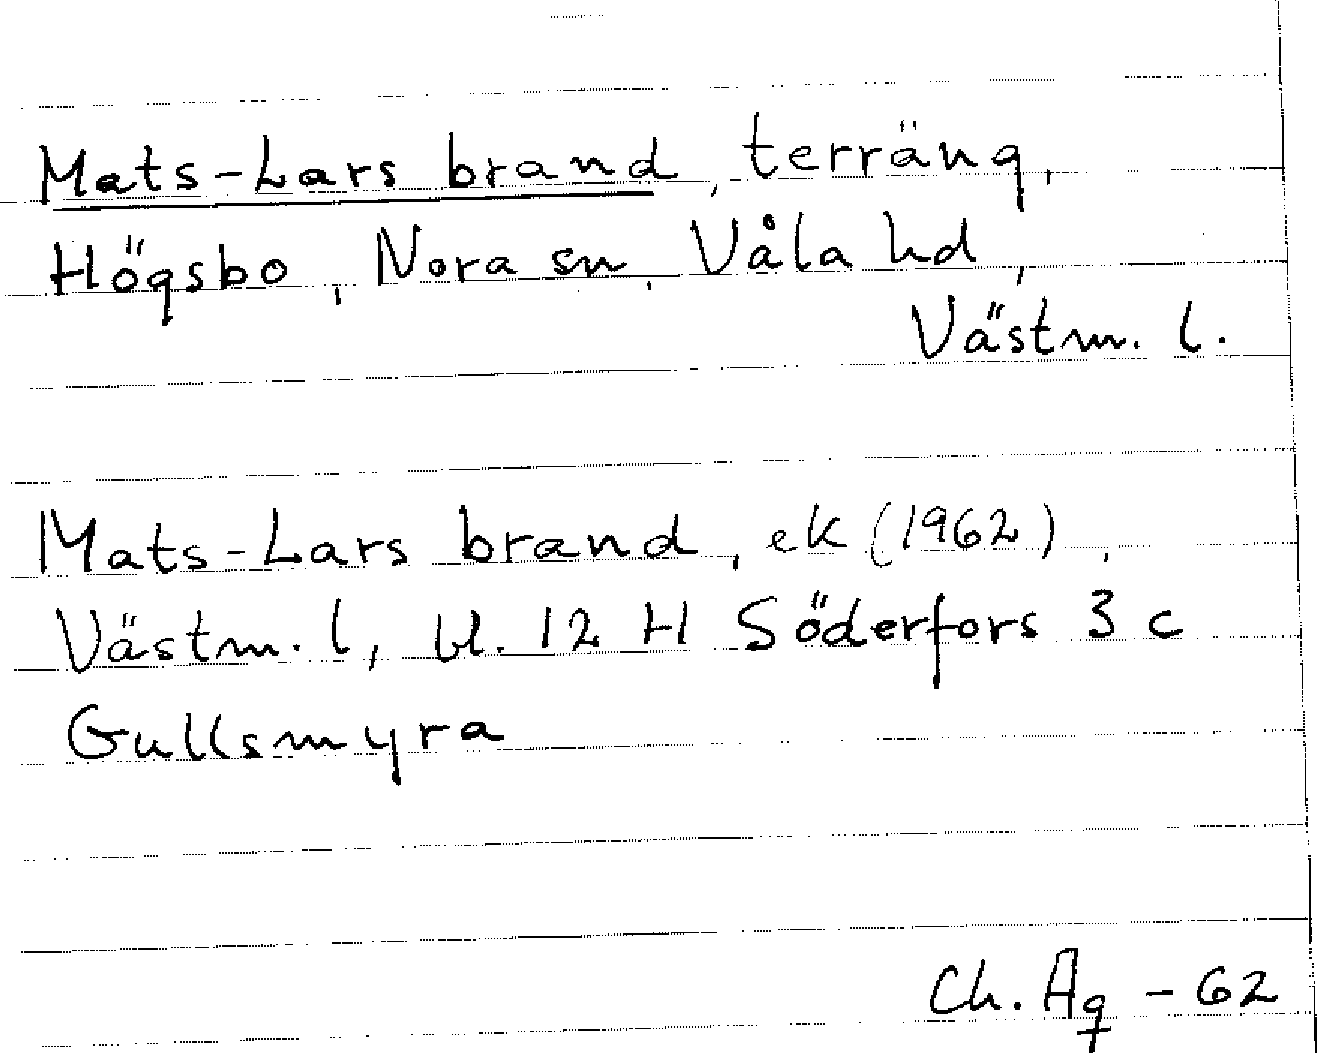 Mats-Lars brand, terräng,
Högsbo, Nora sn, Våla hd,
Västm. l.
Mats-Lars brand, ek (1962),
Västm. l, bl. 12 H Söderfors 3 c
Gullsmyra
Ch. Ag - 62